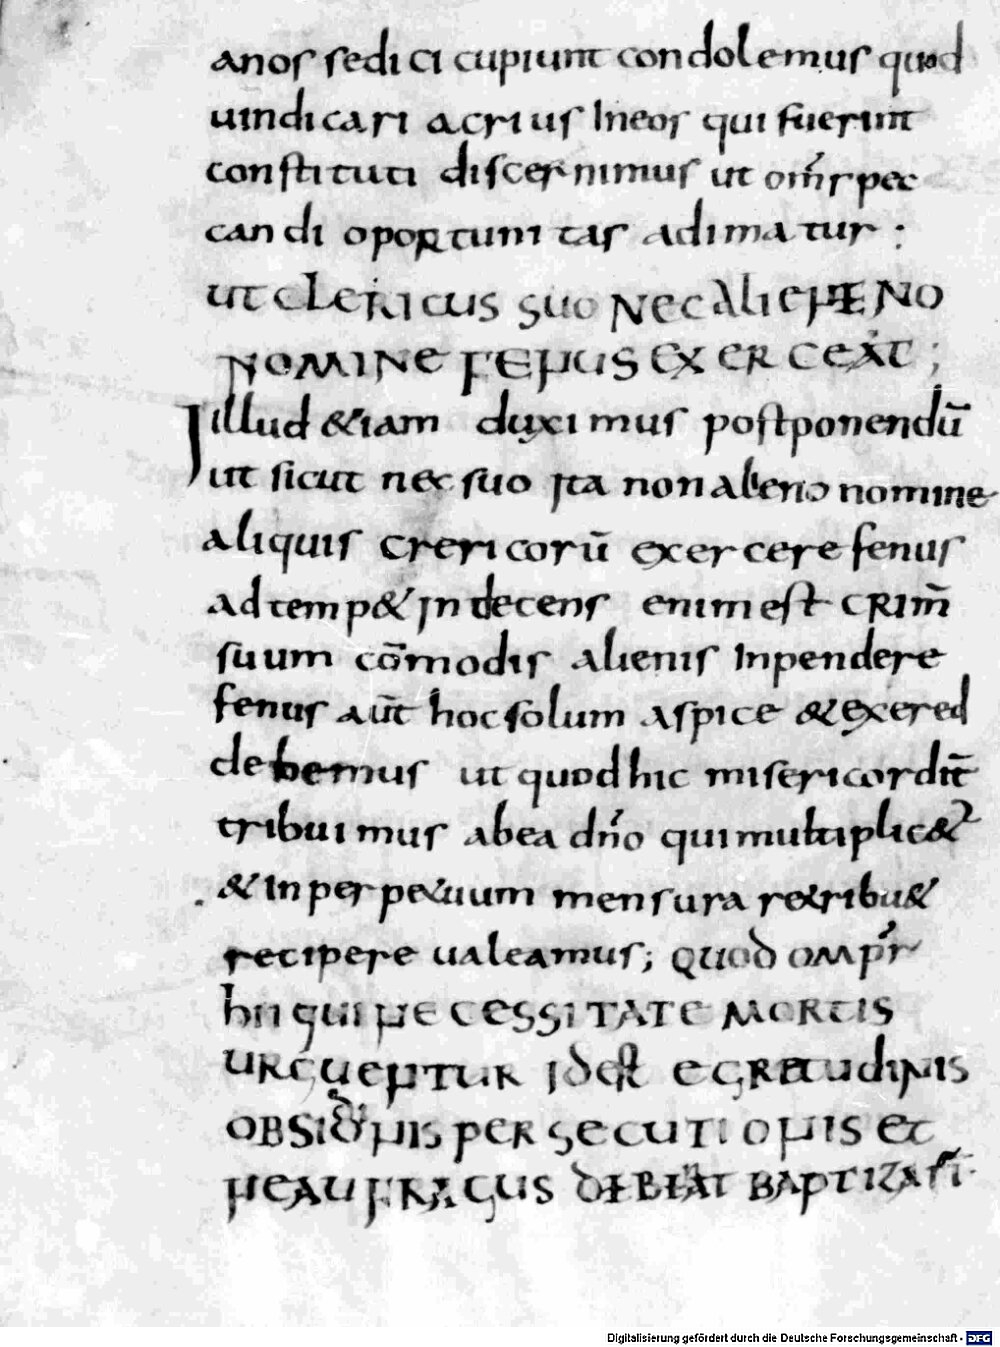 anos sedici cupiunt condolemus quod
uindicari acrius Ineos qui fuerint
constituti discernimus ut om̅s pec
candi oportunitas adimatur :
ut clericus suo nec alieno
nomine fenus exerceat ;
Illud &iam duximus postponendu̅
ut sicut nec suo ita non alieno nomine
aliquis crericoru̅ exercere fenus
adtemp& indecens enim est crim̅
suum co̅modis alienis Inpendere
fenus aut̅ hoc solum aspice & exered
debemus ut quod hic misericordit̅
tribuimus abea dn̅o qui multiplic&
& Inperpetuum mensura retribu&
recipere ualeamus; quod ompr
hii qui necessitate mortis
urguentur idest egretudinis
obsidionis persecutionis et
neaufragus debeat baptizari
Digitalisierung gefördert durch die Deutsche Forschungsgemeinschaft - DFG